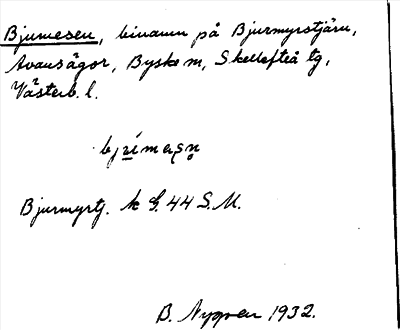 Bjumesen, binamn på Bjurmyrstjärn,
Avansågor, Byske sn, Skellefteå tg,
Västerb. l.
Bjurmyrtj. k G. 44 S.M.
B. Nygren 1932.